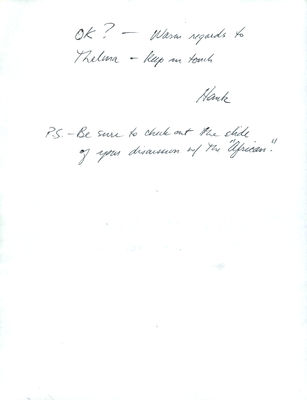 OK? — Warm regards to
Thelma — Keep in touch
Hank
P.S. — Be sure to check out the slide
of your discussion w/ the "African".